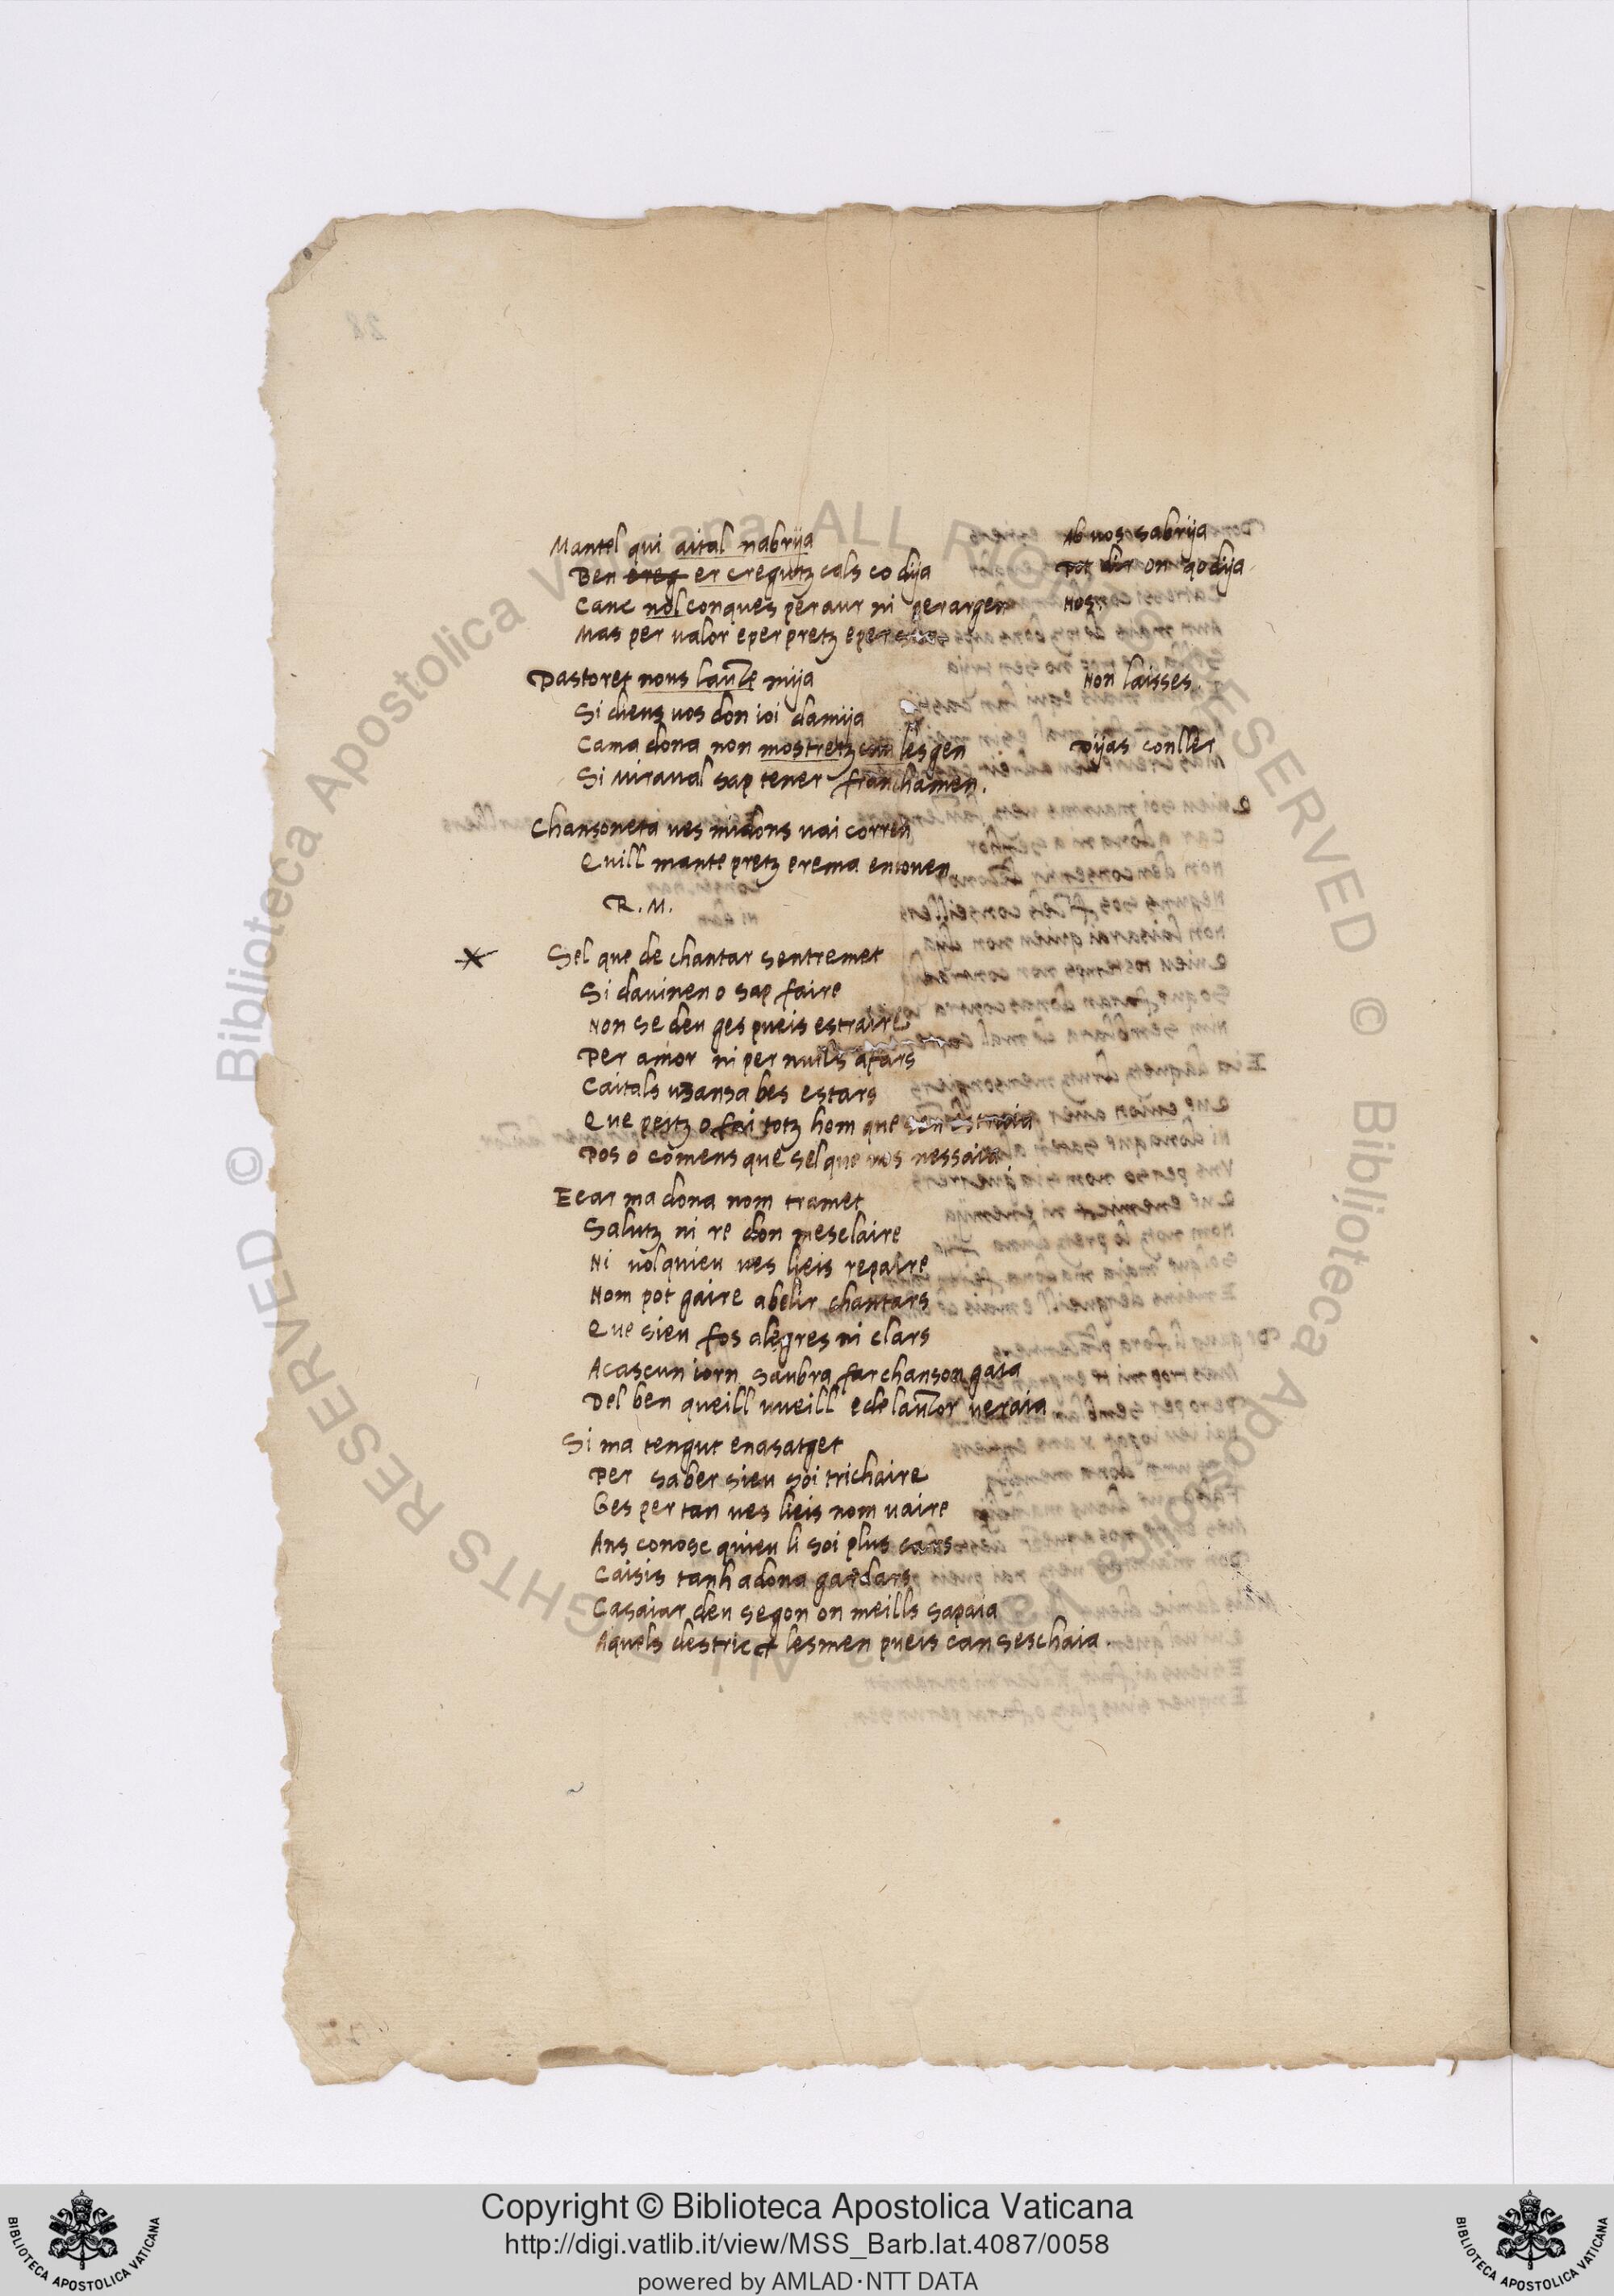 Mantel qui aital nabrija
Ab uos sabrija
Ben ereg er cregutz cals co dija
Pot dir on qo dija.
Canc nol conques per aur ni per argen
Nos.
Mas per ualor e per pretz e per
Pastoret nous laute mija
Non laisses.
Si dieus uos don ioi damija
Cama dona non mostretz com lesgen
Dijas conller
Si Miraual sap tener franchamen.
Chansoneta ues midons uai corren
Quill mante pretz erema en iouen
R. M.
Sel que de chantar sentremet
Si dauinen o sap faire
Non se deu ges pueis estraire
Per amor ni per nuils afars
Caitals uzansa bes estars
Que pertz o fai totz hom que sen estraia
Pos o comens que sel que nos nessaia
E car ma dona nom tramet
Salutz ni re don mesclaire
Ni uol quieu ues lieis repaire
Nom pot gaire abelir chantars
Que sieu fos alegres ni clars
A cascun iorn saubra far chanson gaia
Del ben queill uueill e de lautor ueraia
Si ma tengut en asatget
Per saber sieu soi trichaire
Ges per tan ues lieis nom uaire
Ans conosc quieu li soi plus cars
Caisis tanh a dona gardars
Casaiar deu segon on meills sapaia
Aquels destrict lesmen pueis can seschaia.
Copyright © Biblioteca Apostolica Vaticana
http://digi.vatlib.it/view/MSS_Barb.lat.4087/0058
powered by AMLAD·NTT DATA
BIBLIOTECA APOSTOLICA VATICANA
BIBLIOTECA APOSTOLICA VATICANA
© Biblioteca Apostolica Vaticana ALL RIGHTS RESERVED © Biblioteca Apostolica Vaticana ALL RIGHTS RESERVED